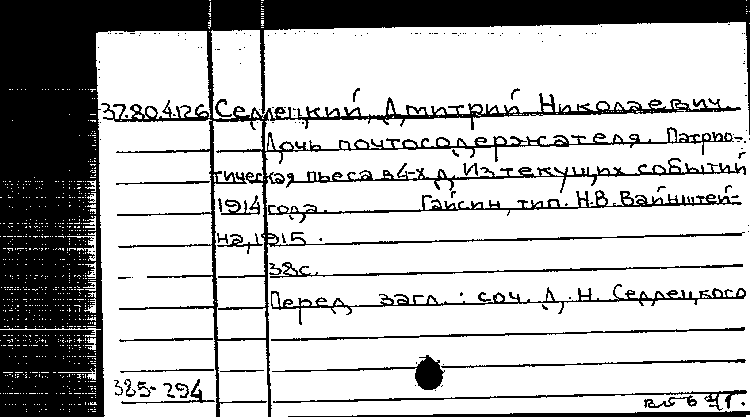 37.80.4.126 Седлецкий, Дмитрий Николаевич.
Дочь почтосодержателя. Патрио-
тическая пьеса в 4-х д. Из текущих событий
1914 года. Гайсин, тип. Н.В. Вайнштей-
на, 1915.
38с.
Перед загл.: соч. Д. Н. Седлецкого
385-294